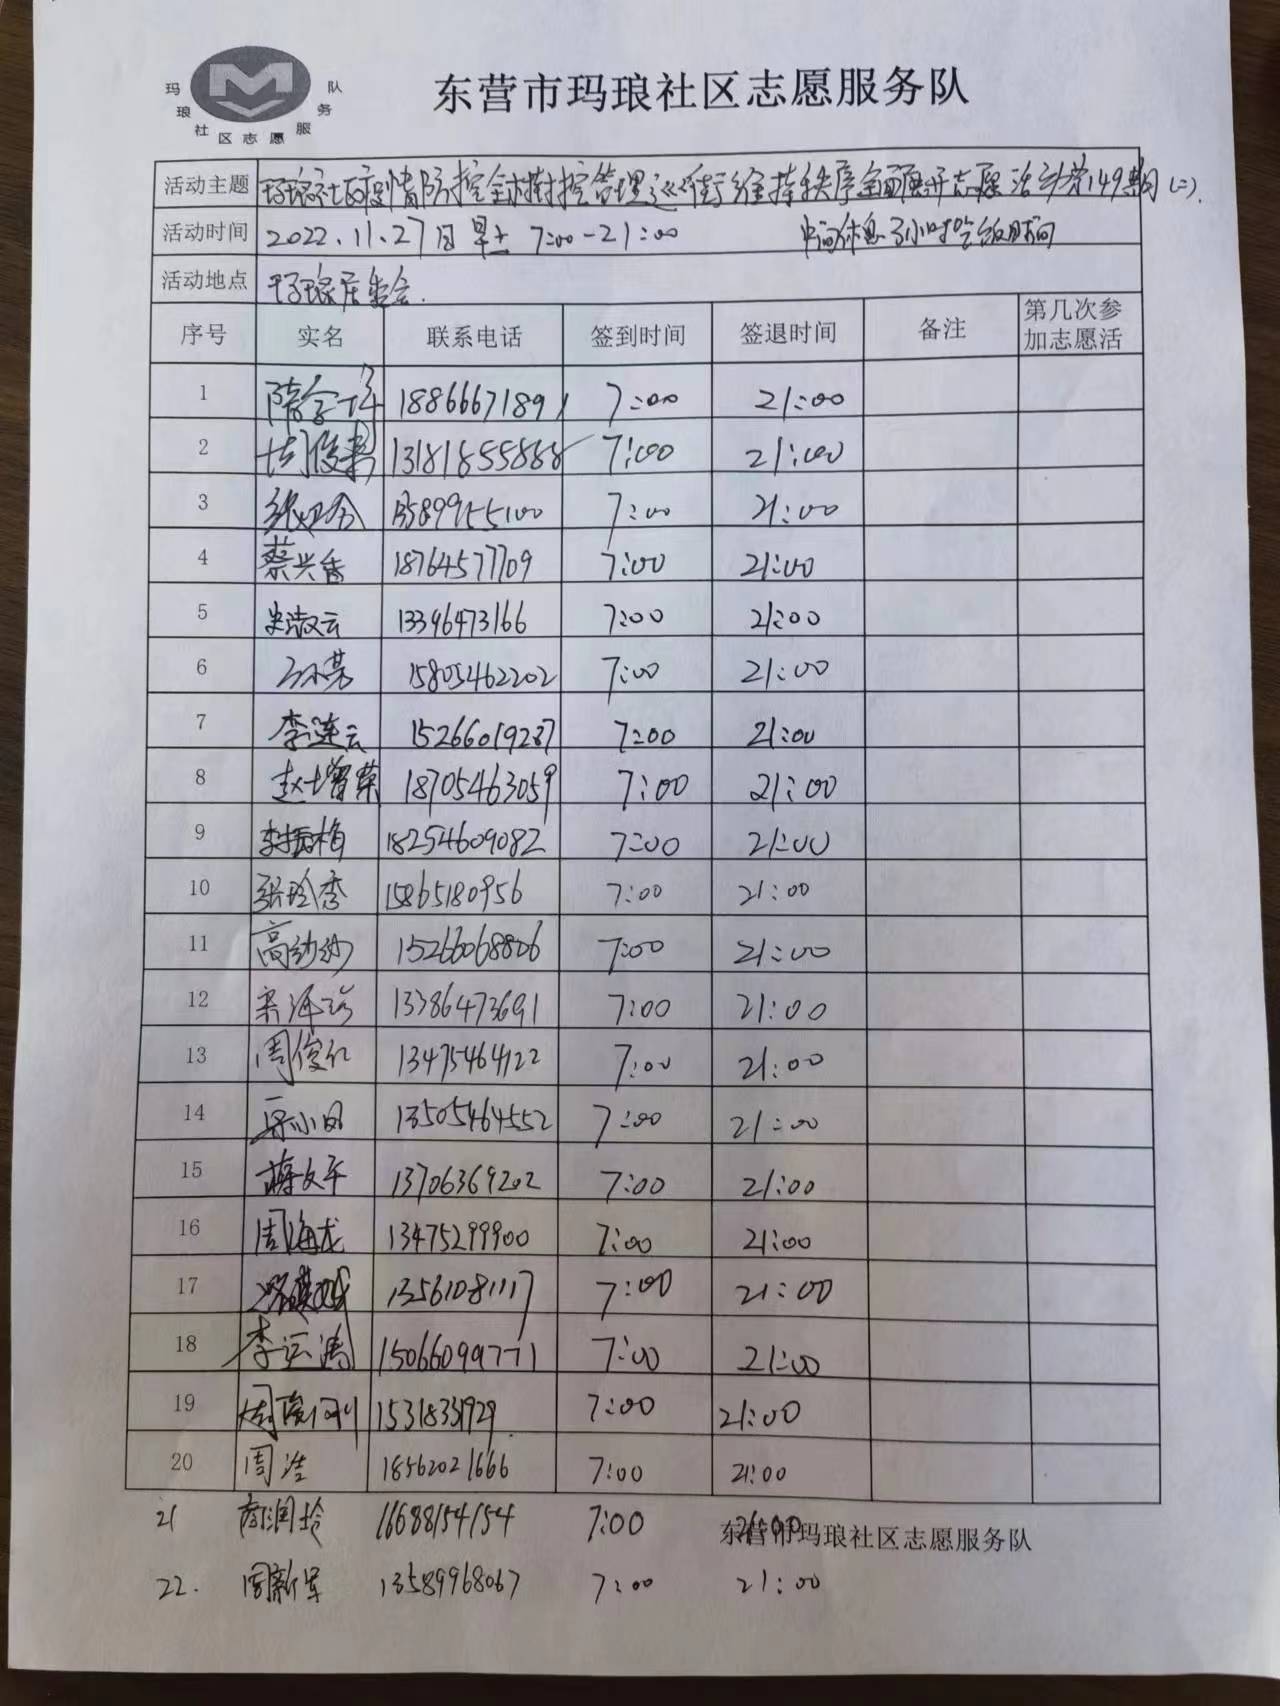 玛琅社区志愿服务队
东营市玛琅社区志愿服务队
活动主题 玛琅社区疫情防控全域封控管理巡街维持秩序全面展开志愿活动第149期(二).
活动时间 2022.11.27日早上 7:00-21:00 中间休息3小时吃饭时间
活动地点 玛琅居委会.
序号 实名 联系电话 签到时间 签退时间 备注 第几次参加志愿活
1 18866671891 7:00 21:00
2 13181855888 7:00 21:00
3 13589955100 7:00 21:00
4 蔡兴香 18764577709 7:00 21:00
5 史淑云 13396473166 7:00 21:00
6 15805462202 7:00 21:00
7 李莲云 15266019287 7:00 21:00
8 赵增荣 18705463059 7:00 21:00
9 李振梅 18254609082 7:00 21:00
10 张玲香 15865180956 7:00 21:00
11 高纱纱 15266068806 7:00 21:00
12 13386473691 7:00 21:00
13 周俊红 13475464122 7:00 21:00
14 13505464552 7:00 21:00
15 蒋文平 13706369202 7:00 21:00
16 周海龙 13475299900 7:00 21:00
17 13561081117 7:00 21:00
18 李运涛 15066099771 7:00 21:00
19 15318331929 7:00 21:00
20 周浩 18562021666 7:00 21:00
21 商润玲 16688154154 7:00 21:00
东营市玛琅社区志愿服务队
22. 周新军 13589968067 7:00 21:00